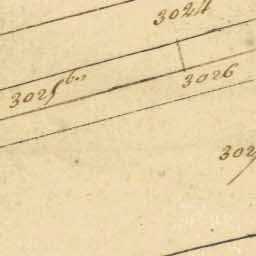 3024
3025 bis
3026
302